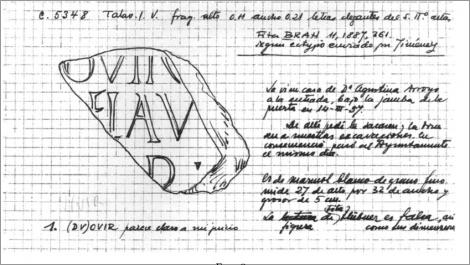 C. 5348 Talav. I. V. frag. alto 0.11 ancho 0.21 letras elegantes del s. II
Fita BRAH 11, 1887, 361.
según calypso enviado por Jiménez
OVIR
CLAV
D
La vi en casa de Dª Agustina Arroyo
a la entrada, bajo la jamba de la
puerta en 14-III-57.
De alto pedí la sacaran; la
en nuestras excavaciones.
pasó al Ayuntamiento
el mismo día.
Es de marmol blanco de grano fino
mide 27 de alto por 32 de ancho y
grosor de 5 cm.
La Hübner es falsa, así
figura como sus dimensiones
1. (DV)OVIR parece claro a mi juicio